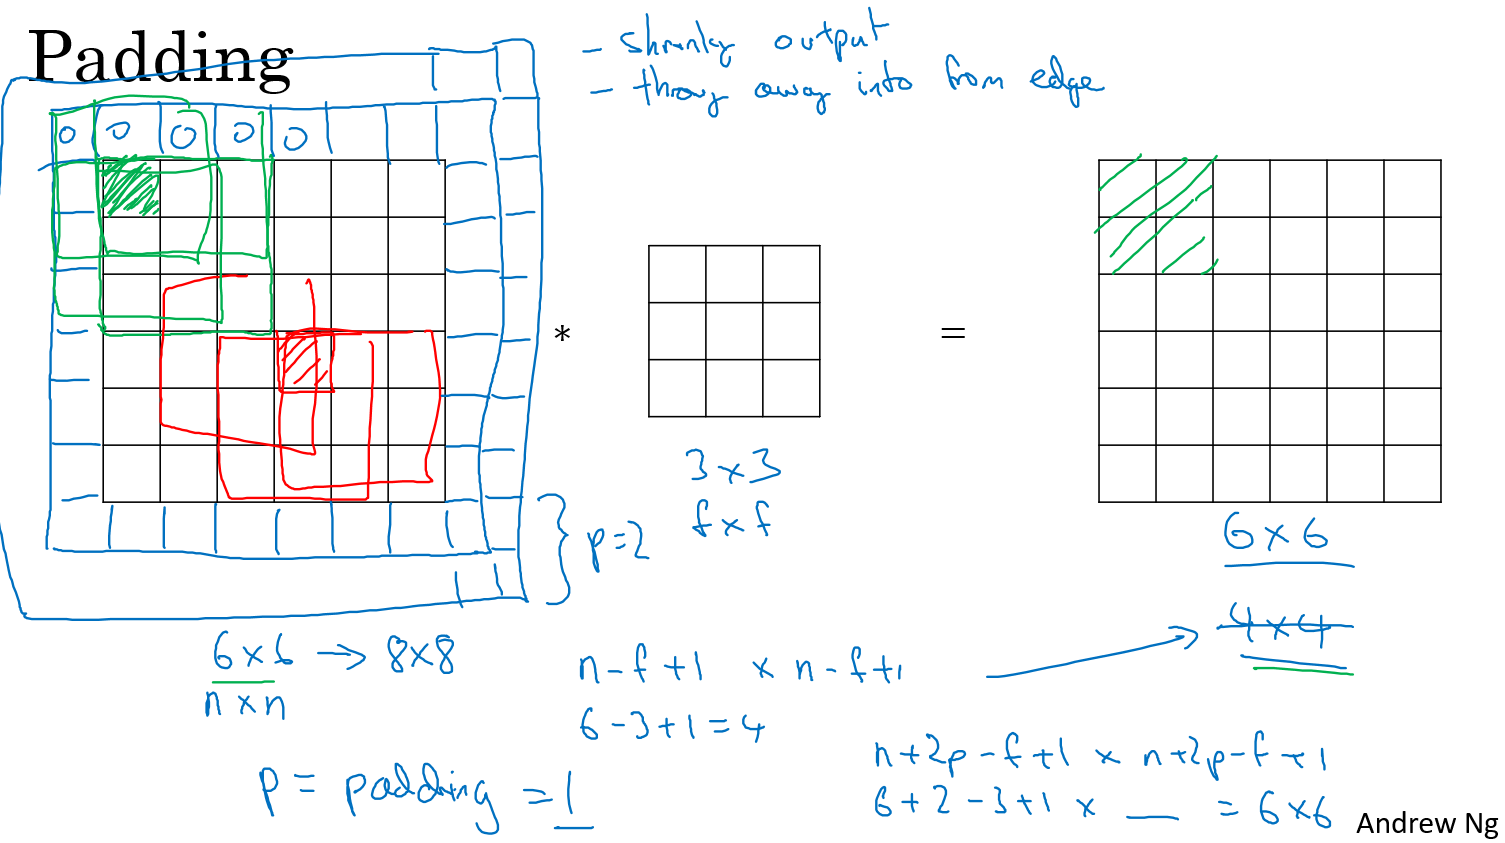 Padding
- shrinky output
- throw away info from edge
0 0 0 0 0
*
=
3 x 3
f x f
6 x 6
p=2
4 x 4
6 x 6 → 8 x 8
n x n
n-f+1 x n-f+1
6-3+1=4
p = padding = 1
n+2p-f+1 x n+2p-f+1
6+2-3+1 x __ = 6x6
Andrew Ng